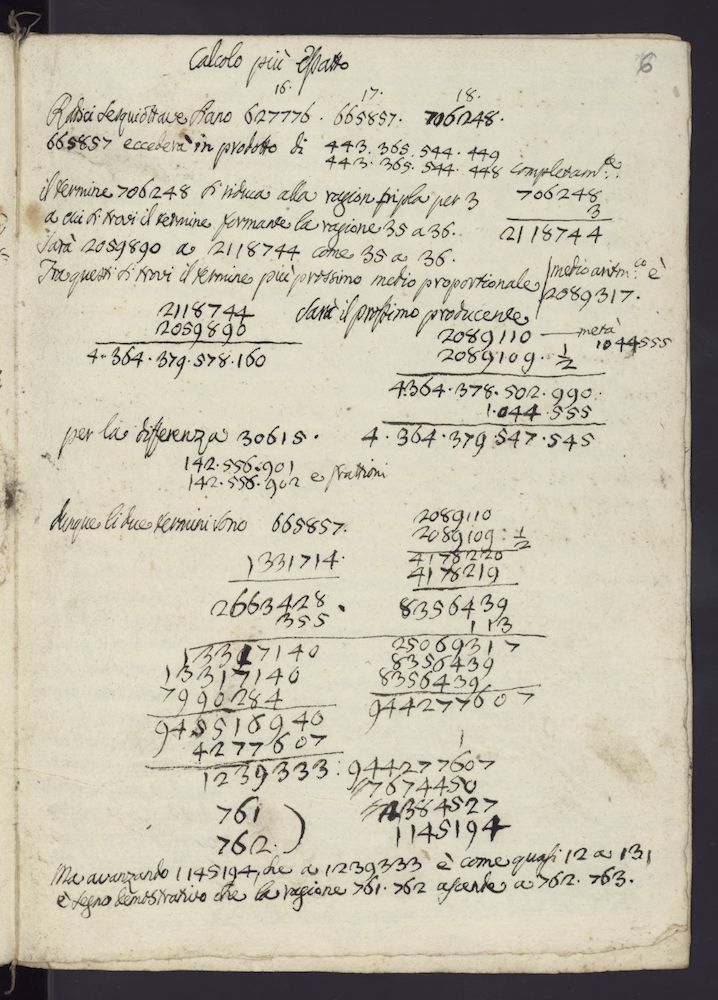 6
Calcolo più esatto
16. 17. 18.
Radici sesquiottave stano 627776. 665857. 706248.
665857 eccederà in prodotto di 443.365.544.449
443.365.544.448 completam.te
il termine 706248 si riduca alla ragion tripla per 3
706248
3
a cui si trovi il termine formante la ragione 35 a 36.
2118744
sarà 2059890 a 2118744 come 35 a 36.
Tra questi si trovi il termine più prossimo medio proportionale
medio aritm.co è
2089317.
2118744
2059890
4.364.379.578.160
Sarà il prossimo producente
2089110 metà
1044555
2089109. 1/2
4364.378.502.990.
1.044.555
4.364.379 547.545
per la differenza 30615.
142.556.901
142.556.902 e frattioni
dunque li due termini sono 665857.
2089110
2089109: 1/2
1331714.
4178220
4178219
2663428.
355
8356439
113
13317140
13317140
7990284
25069317
8356439
8356439
945516940
944277607
4277607
1239333:
1
944277607
17674450
4384527
1145194
761
762.
Ma avanzando 1145194, che a 1239333 è come quasi 12 a 13,
è segno demostrativo che la ragione 761.762 ascende a 762.763.